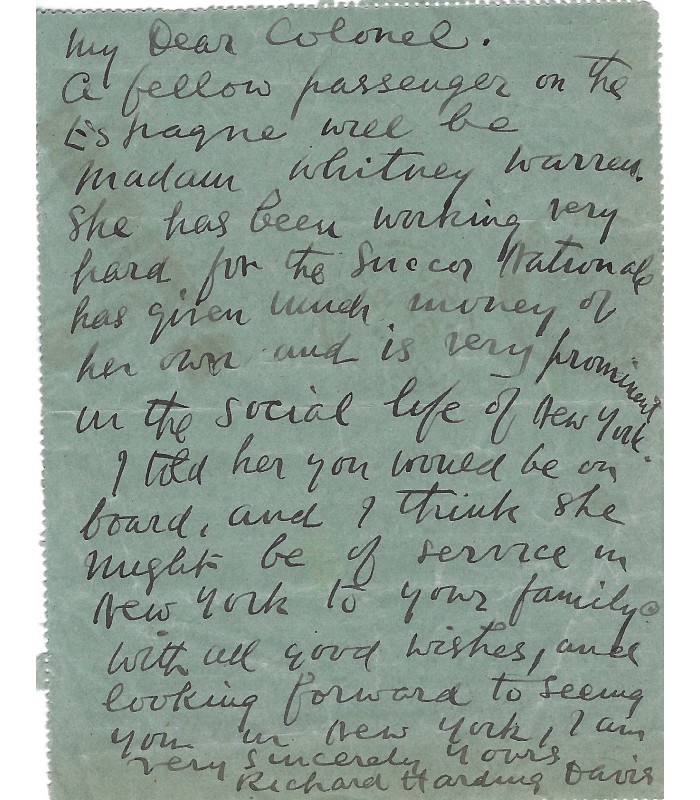 My Dear Colonel.
A fellow passenger on the
Espagne will be
Madam Whitney Warren.
She has been working very
hard for the Succor Nationale
has given much money of
her own and is very prominent
in the social life of New York.
I told her you would be on
board, and I think she
might be of service in
New York to your family.
With all good wishes, and
looking forward to seeing
you in New York, I am
very sincerely yours
Richard Harding Davis